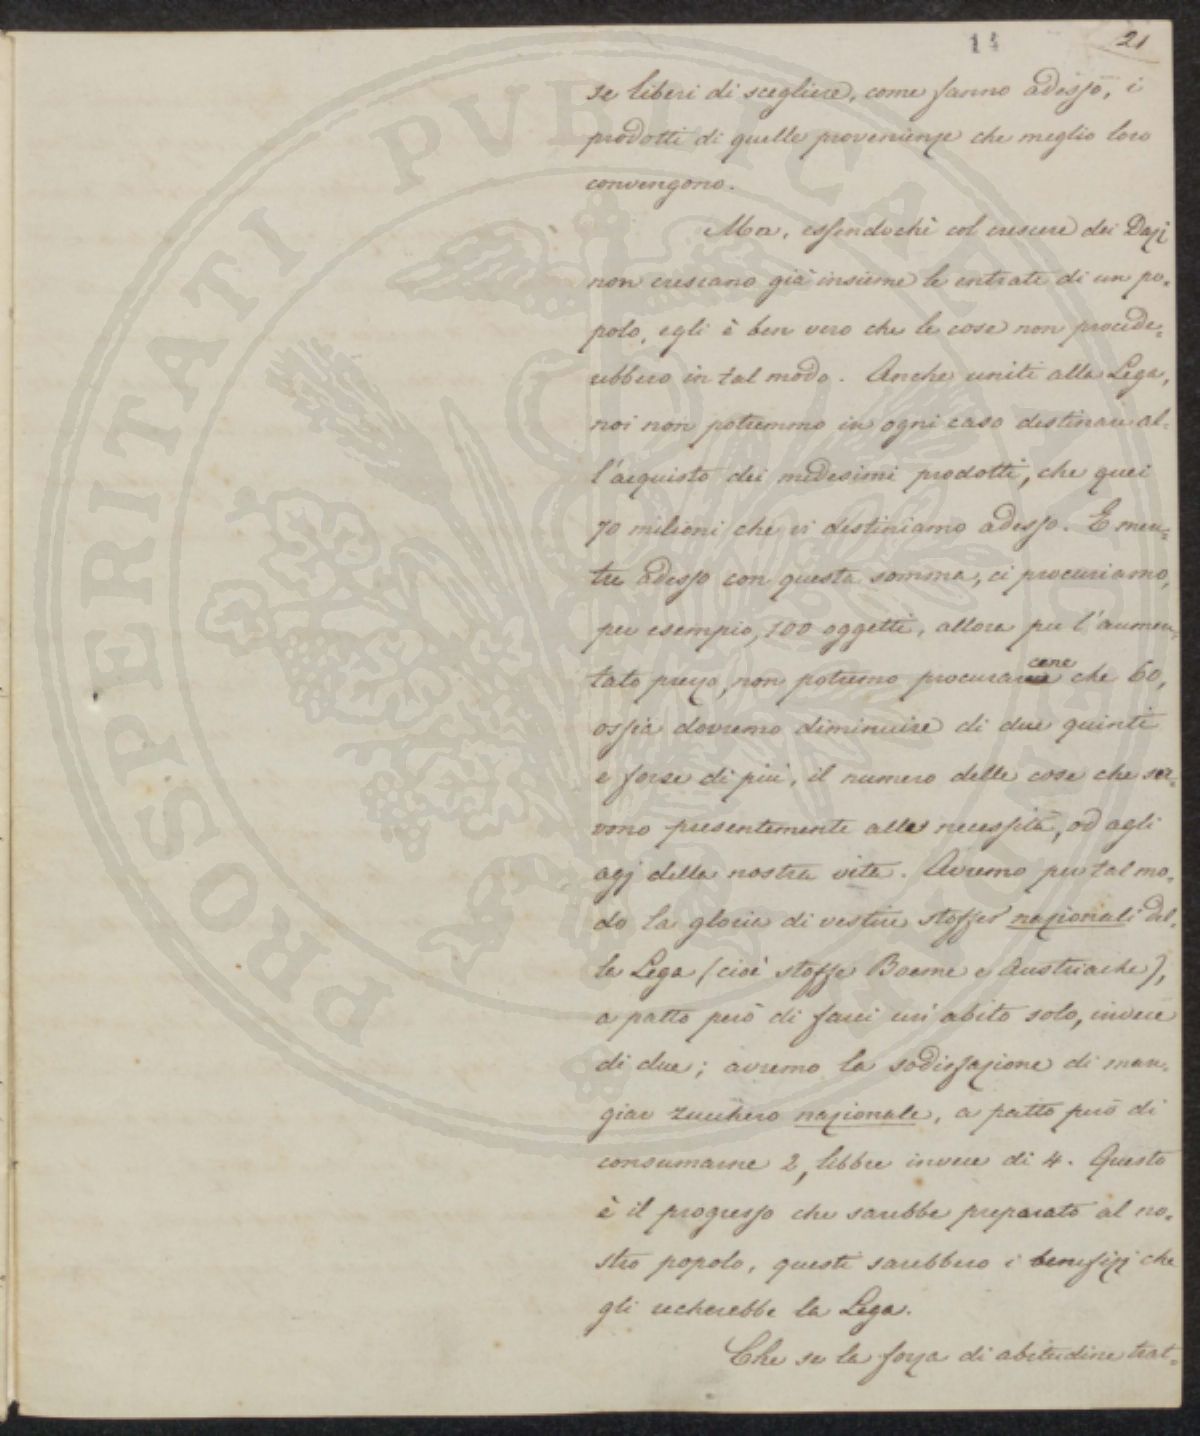 14 21
se liberi di scegliere, come fanno adesso, i
prodotti di quelle provenienze che meglio loro
convengono.
Ma, essendochè col crescere dei Dazj
non crescano già insieme le entrate di un po=
polo, egli è ben vero che le cose non procede=
rebbero in tal modo. Anche uniti alla Lega,
noi non potremmo in ogni caso destinare al=
l'acquisto dei medesimi prodotti, che quei
70 milioni che vi destiniamo adesso. E men=
tre adesso con questa somma, ci procuriamo,
per esempio, 100 oggetti, allora per l'aumen=
tato prezzo, non potremo procurarcene che 60,
ossia dovremo diminuire di due quinti
e forse di più, il numero delle cose che ser=
vono presentemente alle necessità, od agli
agj della nostra vita. Avremo per tal mo=
do la gloria di vestire stoffe nazionali del=
la Lega (cioè stoffe Boeme e Austriache),
a patto però di farci un'abito solo, invece
di due; avremo la sodisfazione di man=
giar zucchero nazionale, a patto però di
consumarne 2, libbre invece di 4. Questo
è il progresso che sarebbe preparato al no=
stro popolo, questi sarebbero i benefizj che
gli recherebbe la Lega.
Che se la forza di abitudine trat=
PROSPERITATI PUBLICAE AUGENDAE